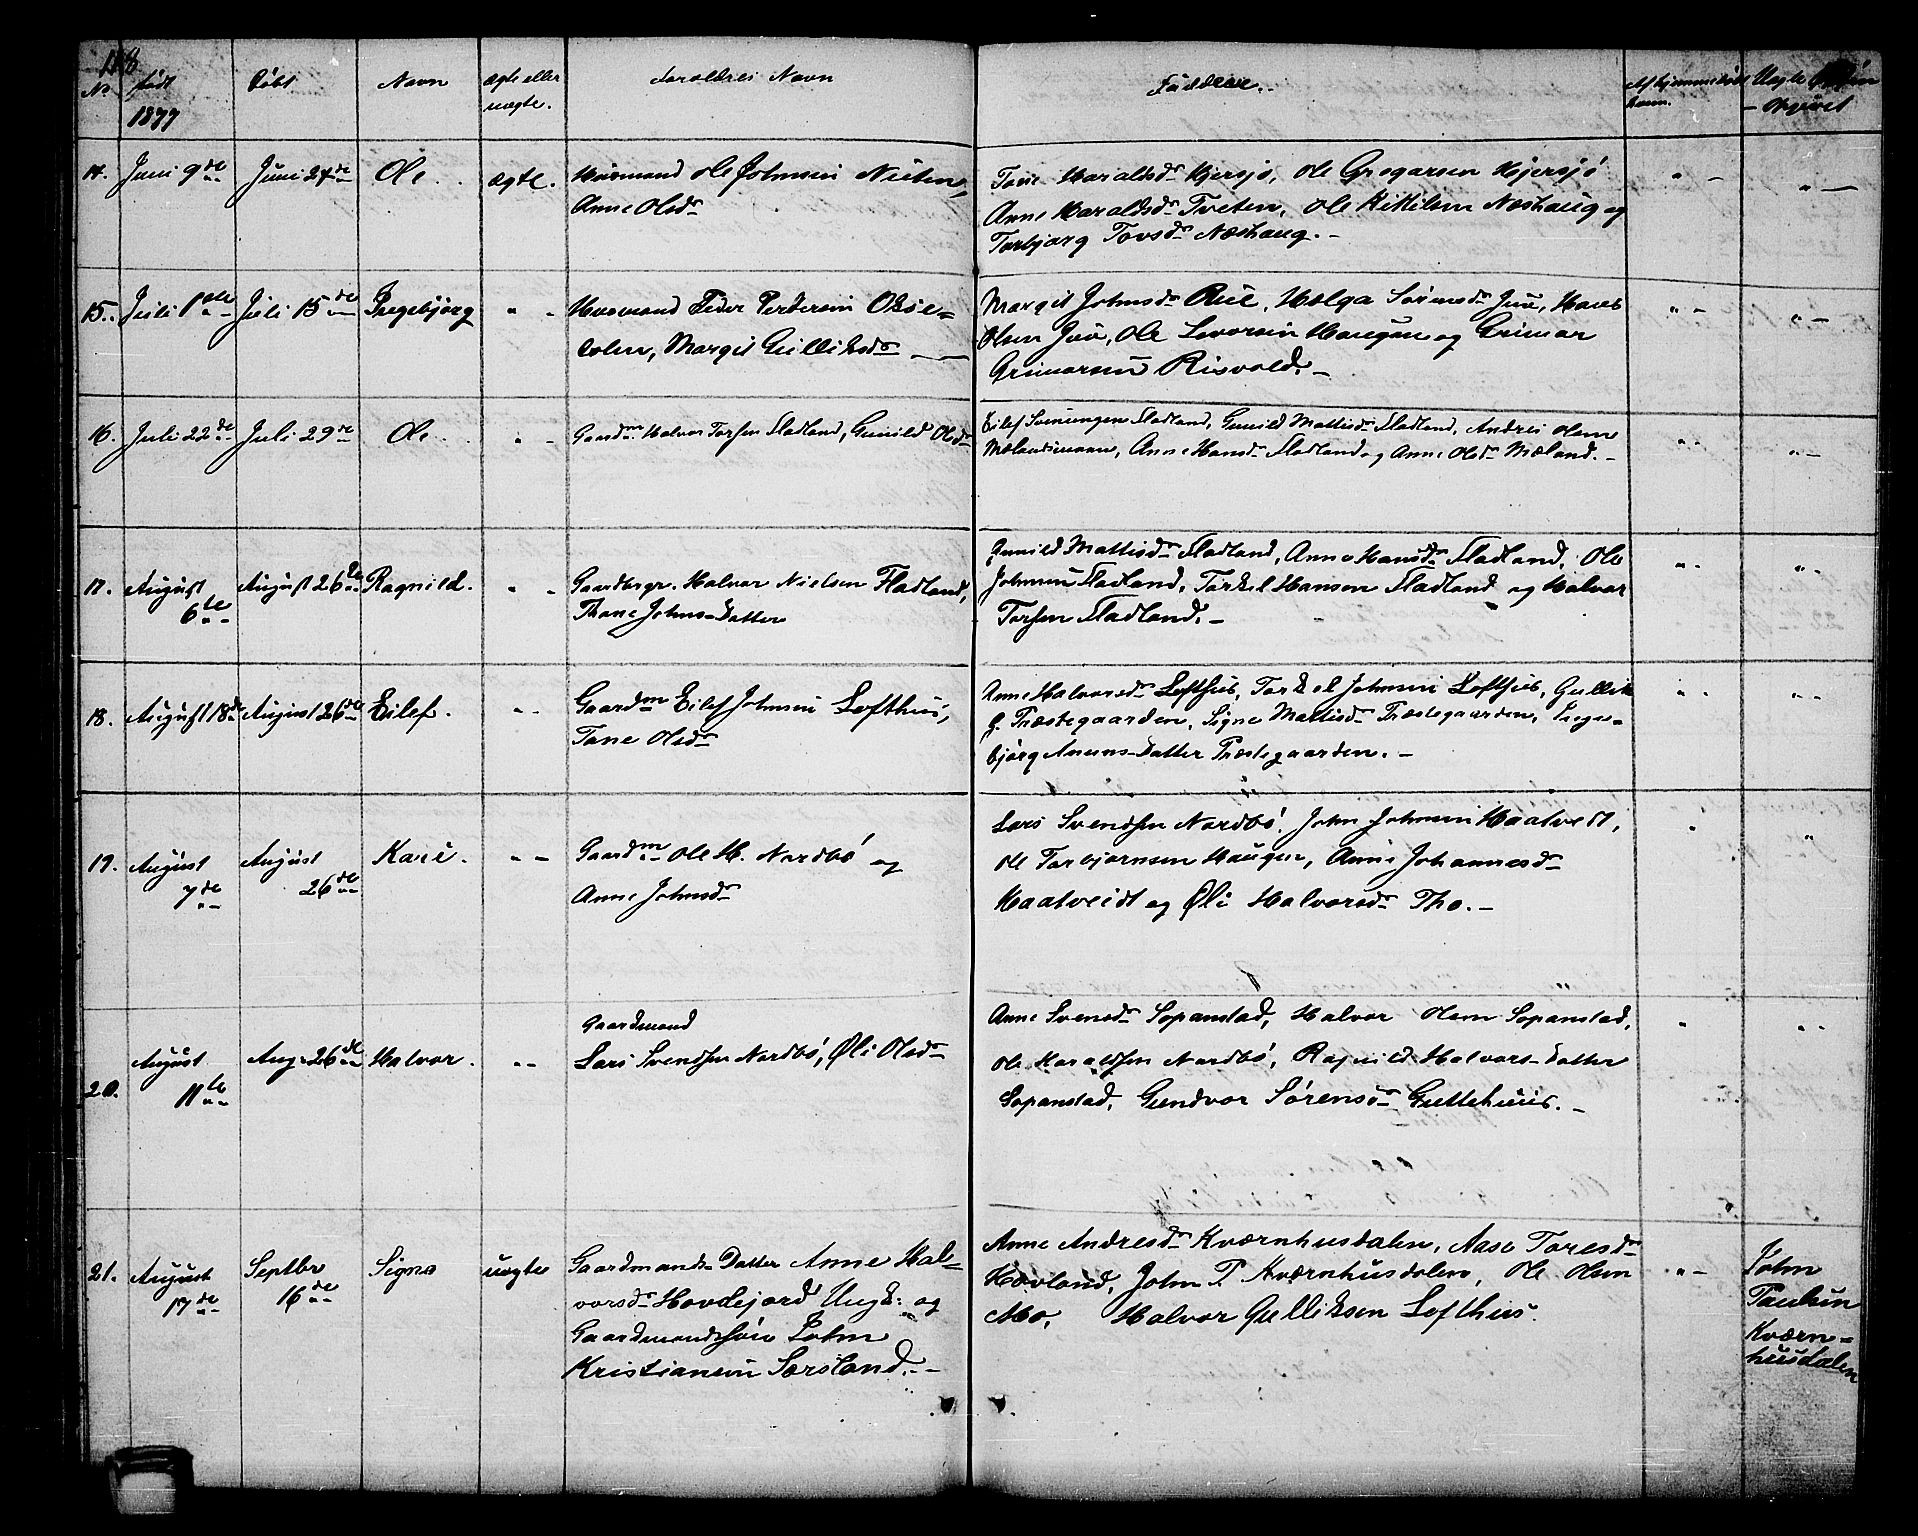 118
No
født
1877
Døbt
Navn
ægte eller
uægte.
Forældres Navn
Faddere.
Af hjemmedøbt
Uægte
14. Juni 9de Juni 24de Ole. ægte. Husmand Ole Johnsen
Anne Olsdr
Tone Haraldsdr Hjersjø, Ole Gregarsen Hjersjø
Anne Haraldsdr Tveten, Ole Kittilsen Næshaug og
Torbjørg Tovsdr Næshaug. —
15. Juli 1ste Juli 15de Ingebjørg " - Husmand Peder Pedersen
Margit Gulliksdr —
Margit Johnsdr Rue, Helga Sørensdr Juv, Hans
Olsen Juv, Ole Levorsen Haugen og Greimar
Greimarsen Risvold. —
16. Juli 22de Juli 29de Ole. " - Gaardm. Halvor Torsen Fladland, Gunild Olsdr
Eilef Sveinungsen Fladland, Gunild Mattisdr Fladland, Andres Olsen
Mælandsmoen, Anne Hansdr Fladland og Anne Olsdr Mæland. —
17. August August 26de Ragnild. " - Gaardbrgr. Halvor Nielsen Fladland,
6te
Thone Johns-Datter
Gunild Mattisdr Fladland, Anne Hansdr Fladland, Ole
Johnsen Fladland, Torkel Hansen Fladland og Halvor
Torsen Fladland. —
18. August 18de August 26de Eilef. " - Gaardm Eilef Johnsen Lofthus,
Tone Olsdr
Anne Halvorsdr Lofthus, Torkel Johnsen Lofthus, Gullik
G. Præstegaarden, Signe Mattisdr Præstegaarden, Inge-
bjørg Anuns-Datter Præstegaarden. —
19. August August Kari. " - Gaardm Ole H. Nordbø og
7de 26de
Anne Johnsdr
Lars Svendsen Nordbø, John Johnsen Haatvedt,
Ole Torbjørnsen Haugen, Anne Johannesdr
Haatveidt og Øli Halvorsdr Tho. —
20. August Aug. 26de Halvor. " - Gaardmand
11te
Lars Svendsen Nordbø, Øli Olsdr
Anne Svensdr Sopanstad, Halvor Olsen Sopanstad,
Ole Haraldsen Nordbø, Ragnild Halvors-Datter
Sopanstad, Gundvor Sørensdr Guttehuus. —
21. August Septbr Signe uægte Gaardmands-Datter Anne Hal-
17de 16de
vorsdr Hovdejord Ungk: og
Gaardmandssøn John
Kristiansen Særsland. —
Anne Andresdr Kværnhusdalen, Aase Toresdr
Hovland, John P. Kværnhusdalen, Ole Olsen
Mo, Halvor Gulliksen Lofthus.
John
Paulsen
Kværn-
husdalen